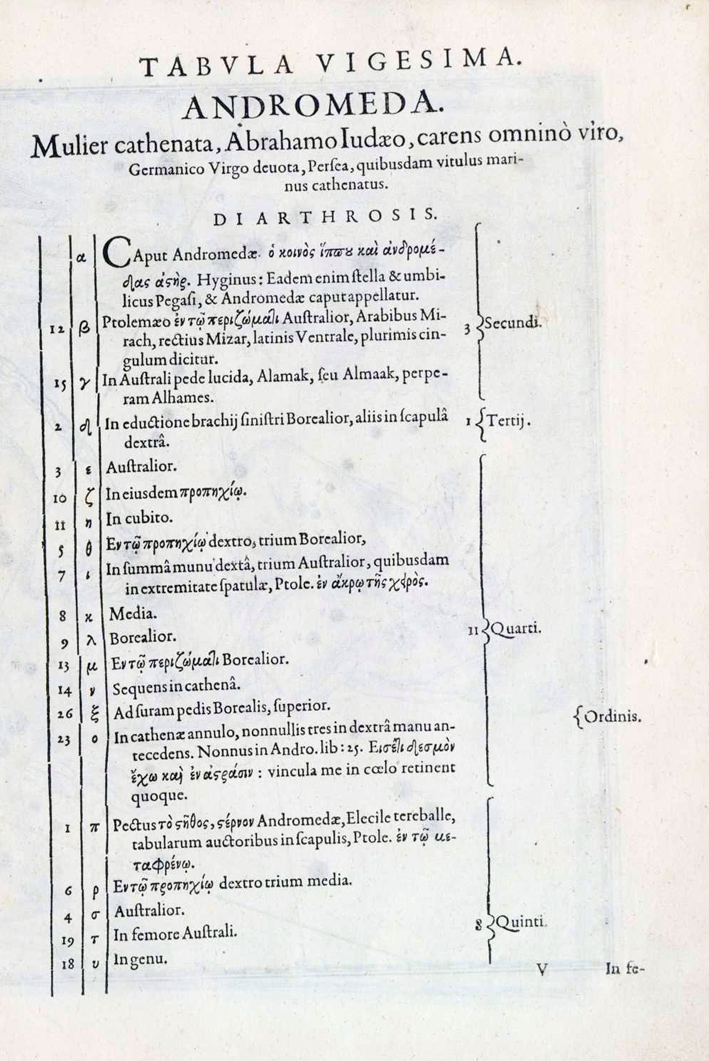 TABVLA VIGESIMA.
ANDROMEDA.
Mulier cathenata, Abrahamo Iudæo, carens omninò viro,
Germanico Virgo deuota, Perſea, quibusdam vitulus mari-
nus cathenatus.
DIARTHROSIS.
α CAput Andromedæ. ὁ κοινὸς ἵππου καὶ ἀνδρομέ-
δας ἀςὴρ. Hyginus: Eadem enim ſtella & umbi-
licus Pegaſi, & Andromedæ caput appellatur.
12 β Ptolemæo ἐν τῷ περιζώματι Auſtralior, Arabibus Mi-
rach, rectius Mizar, latinis Ventrale, plurimis cin-
gulum dicitur.
3 Secundi.
15 γ In Auſtrali pede lucida, Alamak, ſeu Almaak, perpe-
ram Alhames.
2 δ In eductione brachij ſiniſtri Borealior, aliis in ſcapulâ
dextrâ.
1 Tertij.
3 ε Auſtralior.
10 ζ In eiusdem προπηχίῳ.
11 η In cubito.
5 θ Εν τῷ προπηχίῳ dextro, trium Borealior,
7 ι In ſummâ munu dextâ, trium Auſtralior, quibusdam
in extremitate ſpatulæ, Ptole. ἐν ἄκρῳ τῆς χειρὸς.
8 κ Media.
9 λ Borealior.
11 Quarti.
13 μ Εν τῷ περιζώματι Borealior.
14 ν Sequens in cathenâ.
26 ξ Ad ſuram pedis Borealis, ſuperior.
Ordinis.
23 ο In cathenæ annulo, nonnullis tres in dextrâ manu an-
tecedens. Nonnus in Andro. lib: 25. Εισέτι δεσμὸν
ἔχω καὶ ἐν ἀςράσιν : vincula me in cœlo retinent
quoque.
1 π Pectus τὸ ςῆθος, ςέρνον Andromedæ, Elecile tereballe,
tabularum auctoribus in ſcapulis, Ptole. ἐν τῷ με-
ταφρένῳ.
6 ρ Εν τῷ προπηχίῳ dextro trium media.
4 σ Auſtralior.
19 τ In femore Auſtrali.
8 Quinti.
18 υ In genu.
V In fe-